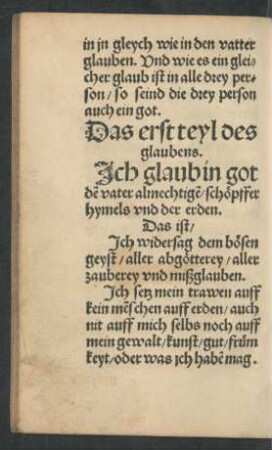 in jn gleych wie in den vatter
glauben. Und wie es ein glei⸗
cher glaub ist in alle drey per⸗
son/ so seind die drey person
auch ein got.
Das erst teyl des
glaubens.
Ich glaub in got
dē vater almechtigē/ schöpffer
hymels vnd der erden.
Das ist/
Ich widersag dem bösen
geyst/ aller abgötterey/ aller
zauberey vnd mißglauben.
Ich setz mein trawen auff
kein mēschen auff erden/ auch
nit auff mich selbs noch auff
mein gewalt/ kunst/ gut/ frūm
keyt/ oder was ich habē mag.